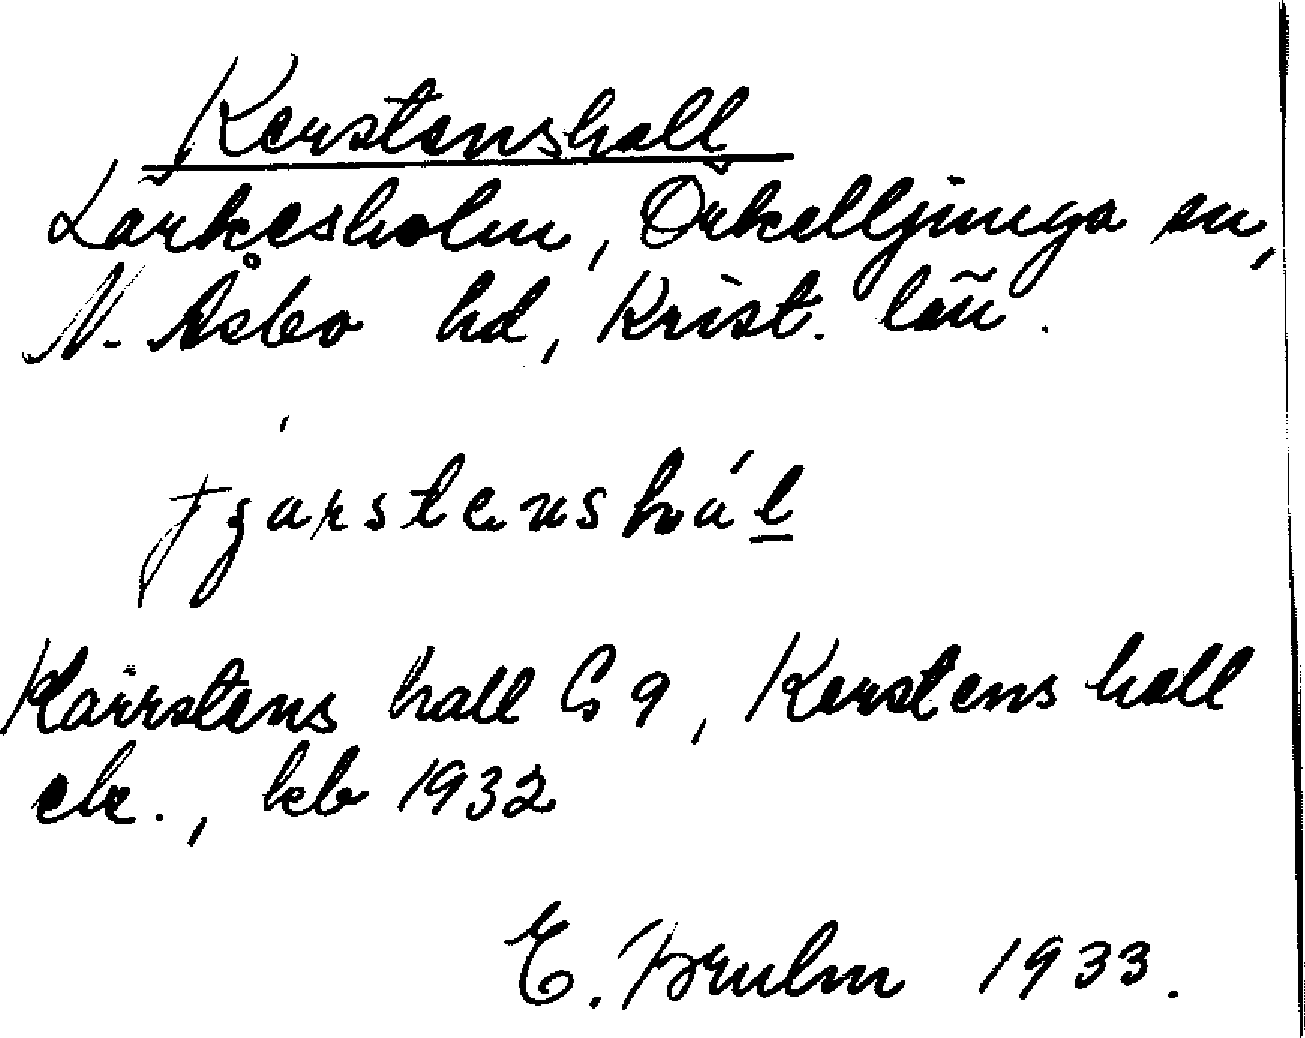 Kerstenshall
Lärkesholm, Örkelljunga sn,
N. Åsbo hd, Krist. län.
tjarstenshál
Kärrstens hall G 9, Kerstens hall
ek., kb 1932
E. Brulm 1933.